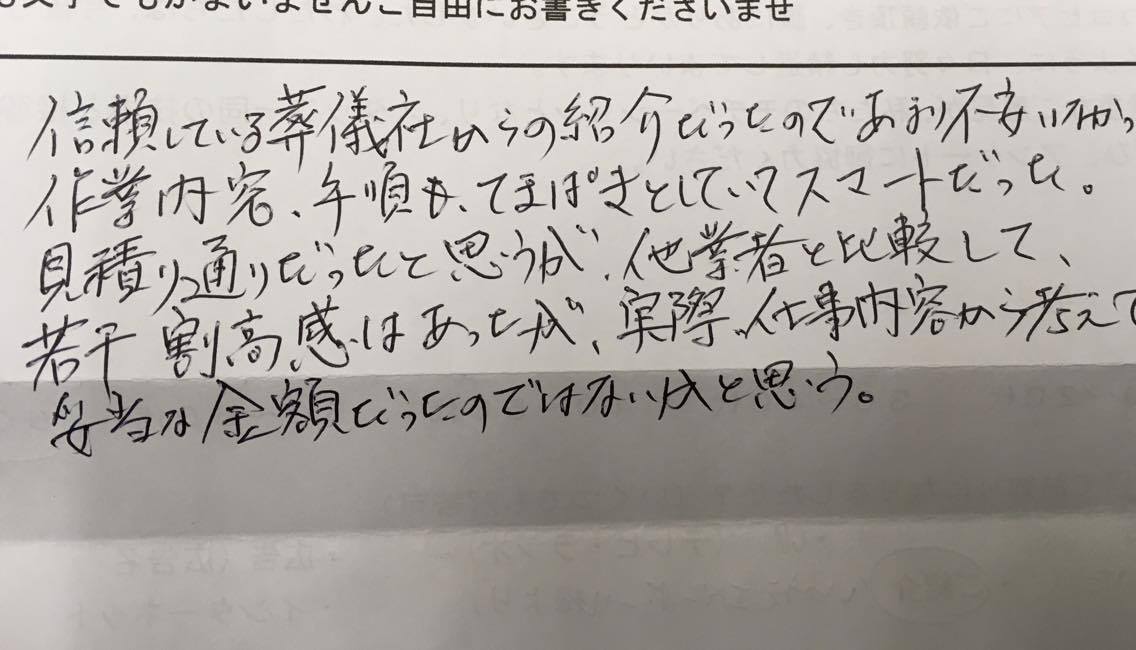 文字でもかまいませんご自由にお書きくださいませ
信頼している葬儀社からの紹介だったのであまり不安いかっ
作業内容、手順も、てきぱきとしていてスマートだった。
見積り通りだったと思うが、他業者と比較して、
若干割高感はあったが、実際、仕事内容から考えて
妥当な金額だったのではないかと思う。